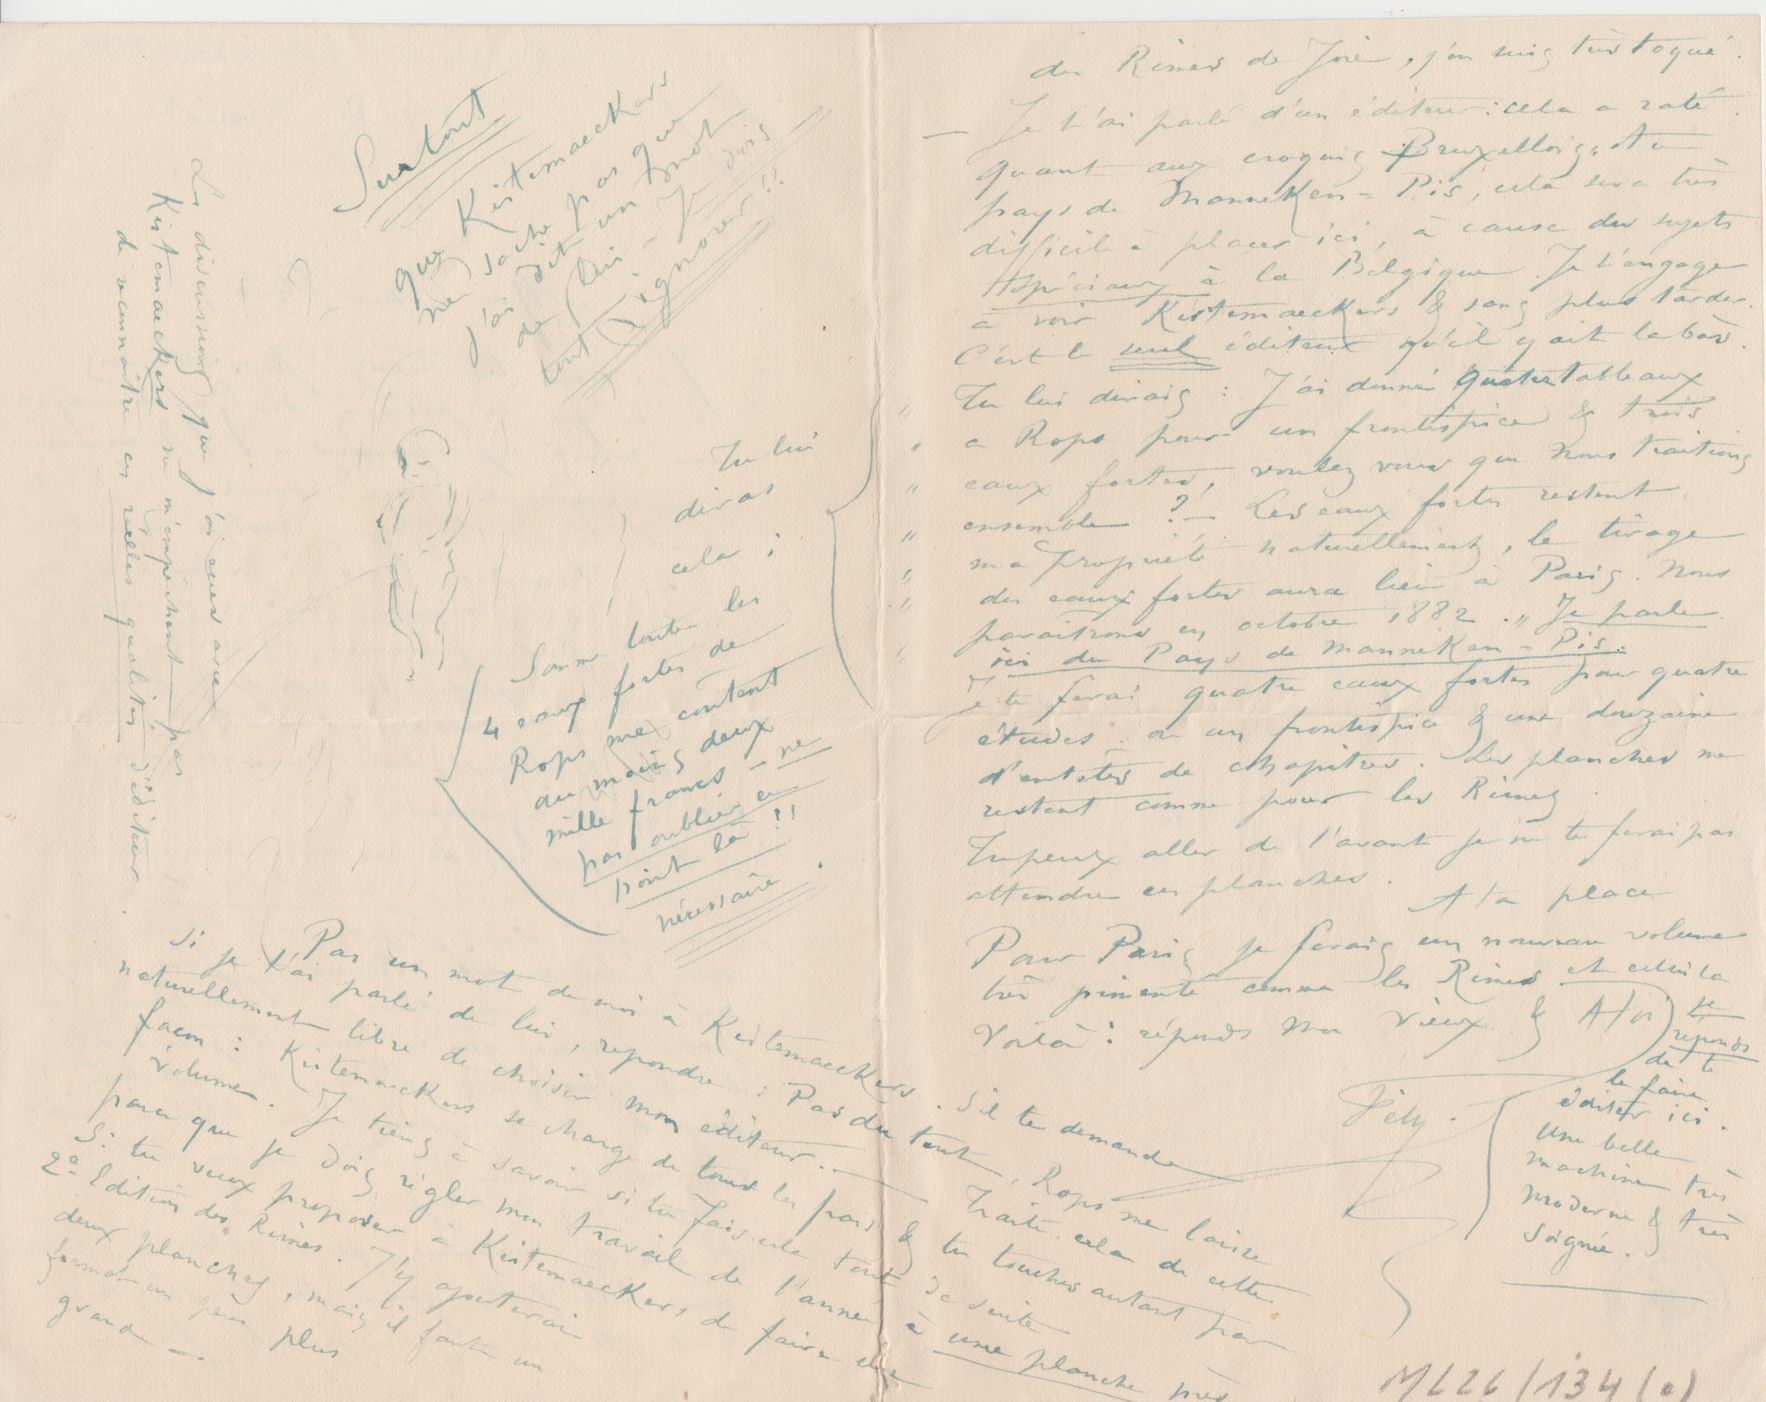 des Rimes de Joie, j'en suis très toqué.
— Je t'ai parlé d'un éditeur : cela a raté.
quant aux croquis Bruxellois, & au
pays de Manneken-Pis, cela sera très
difficile à placer ici, à cause des sujets
spéciaux à la Belgique. Je t'engage
à voir Kistemaeckers & sans plus tarder.
C'est le seul éditeur qu'il y ait là bas.
Tu lui dirais : J'ai donné quatre tableaux
" a Rops pour un frontispice & trois
" eaux fortes, voulez vous que nous traitions
" ensemble ? — Les eaux fortes restent
" ma propriété naturellement, le tirage
" des eaux fortes aura lieu à Paris. Nous
" paraîtrons en octobre 1882. " Je parle
ici du Pays de Manneken-Pis.
Je te ferai quatre eaux fortes pour quatre
études, ou un frontispice & une douzaine
d'entêtes de chapitres. Les planches me
restent comme pour les Rimes.
Tu peux aller de l'avant je ne te ferai pas
attendre ces planches. A ta place
Pour Paris je ferais un nouveau volume
très pimenté comme les Rimes et celui là
je
réponds
de te
le faire
éditer ici.
Voilà : réponds mon vieux & A toi
Fély.
une belle
machine très
moderne & très
soignée.
Tu lui
diras
cela ;
Somme toute les
4 eaux fortes de
Rops me coûtent
au moins deux
mille francs — ne
pas oublier ce
point là !!
nécessaire.
Surtout
que Kistemaeckers
ne sache pas que
j'ai dit un mot
de lui. Je dois
tout ignorer !!
Les discussions que j'ai eues avec
Kistemaeckers ne m'empêchent pas
de reconnaître ses réelles qualités d'éditeur.
Pas un mot de moi à Kistemaeckers. S'il te demande
si je t'ai parlé de lui, repondre : Pas du tout, Rops me laisse
naturellement libre de choisir mon éditeur. — Traite cela de cette
façon : Kistemaeckers se charge de tous les frais & tu touches autant par
volume. Je tiens à savoir si tu fais cela tout de suite
parce que je dois régler mon travail de l'année à une planche près
Si tu veux proposer à Kistemaeckers de faire une
2e Edition des Rimes. J'y ajouterai
deux planches, mais il faut un
format un peu plus
grand —
ML26/134(a)